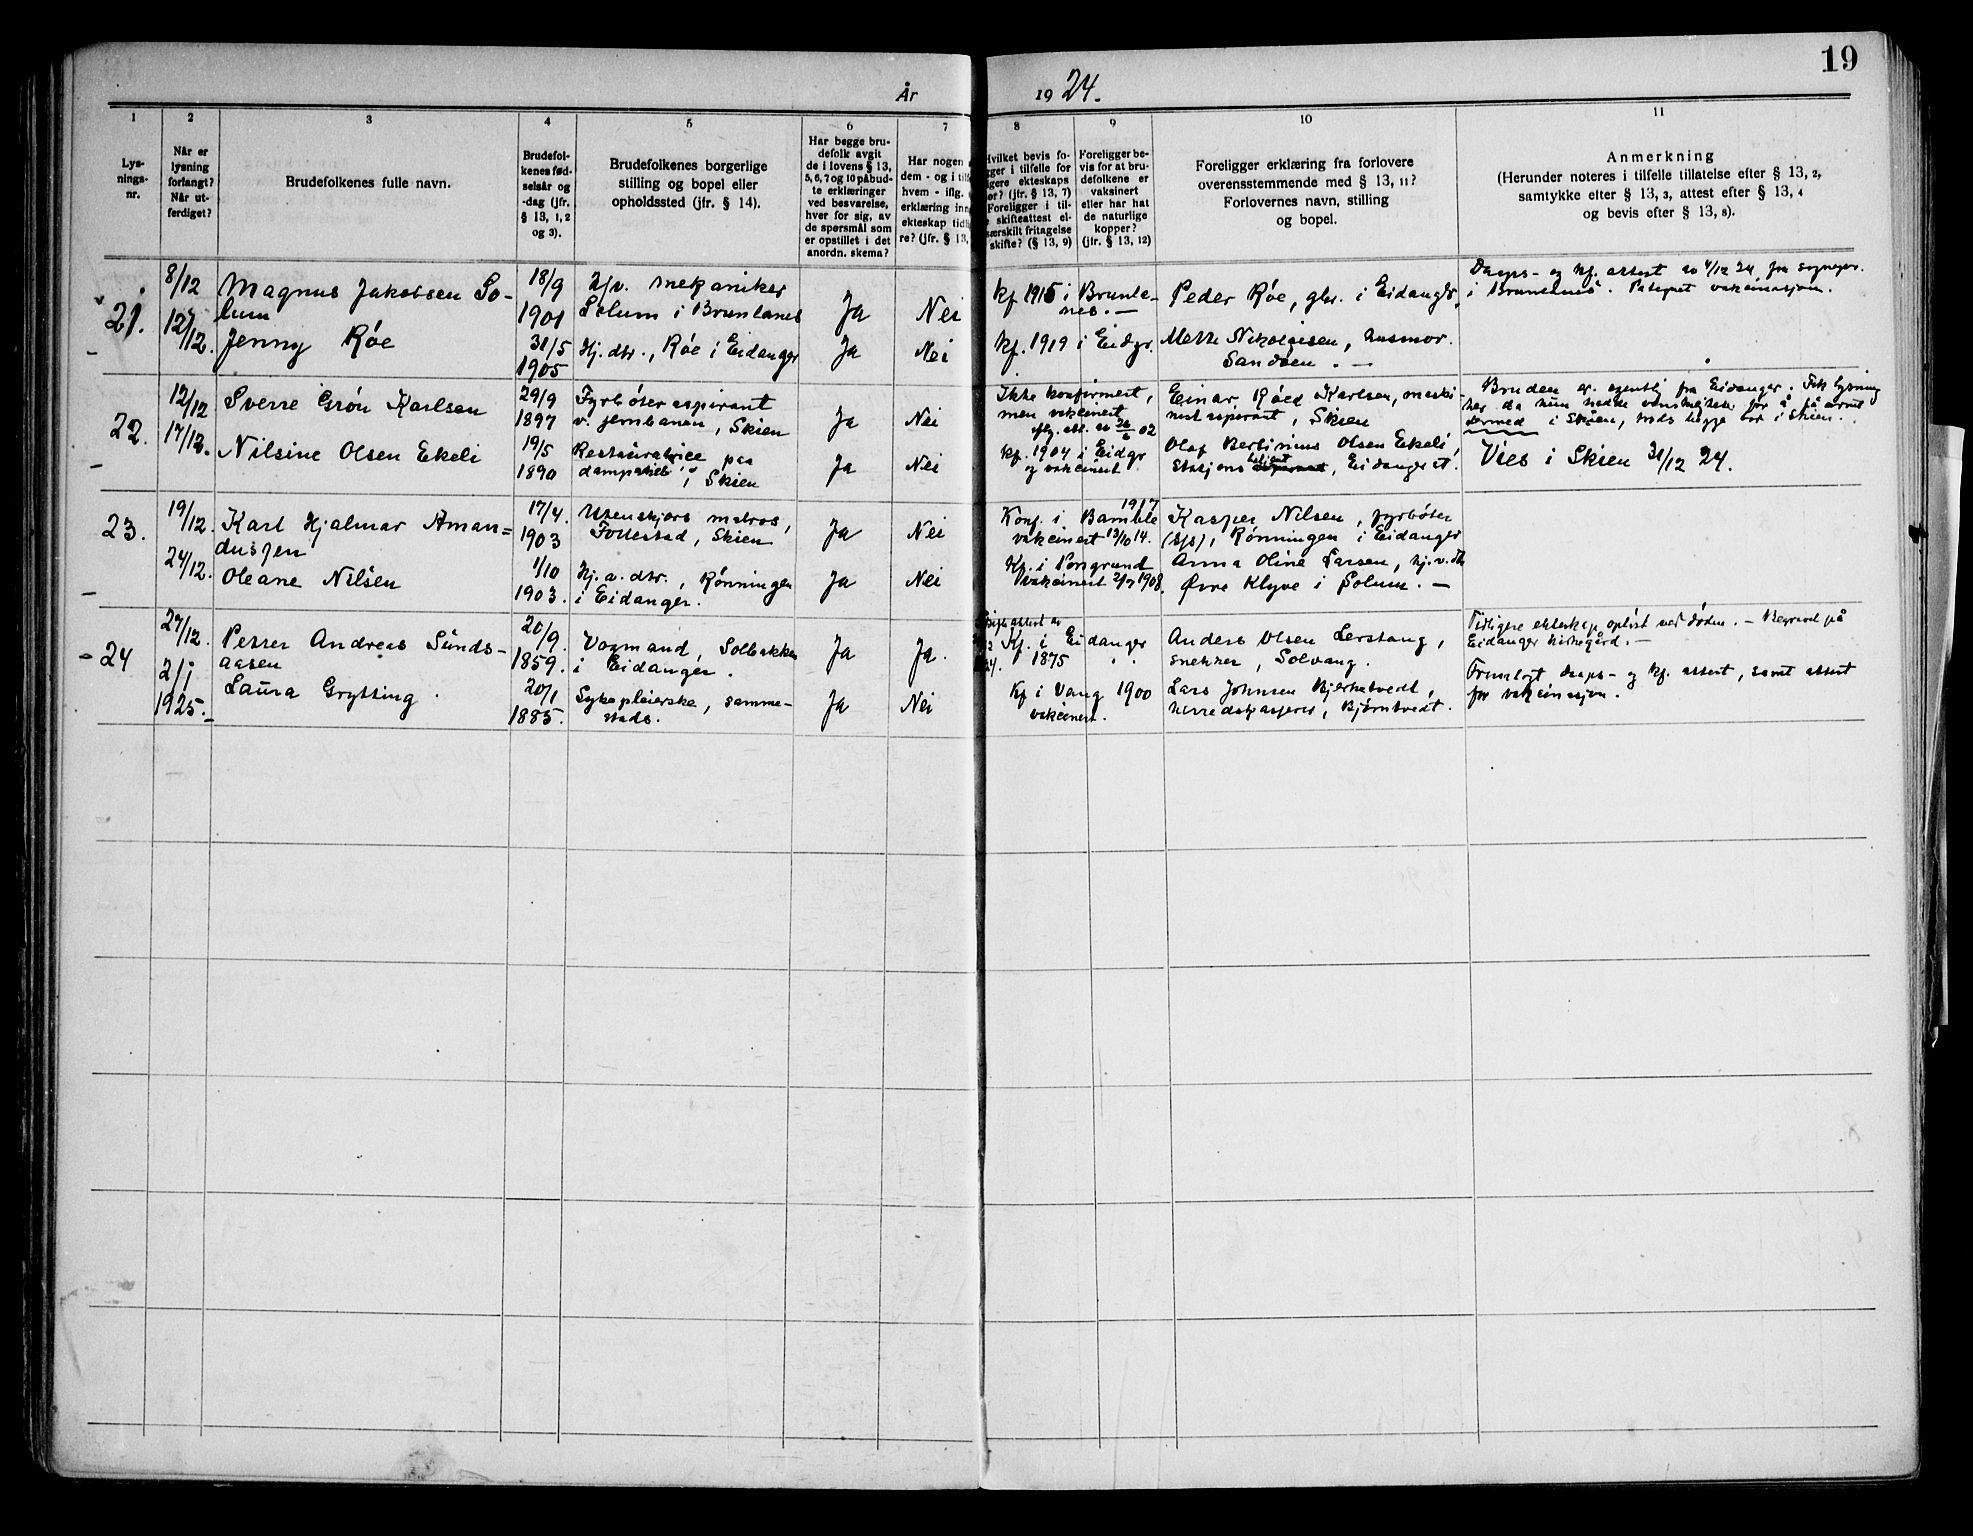 19
År 1924.
1
2
3
4
5
6
7
8
9
10
11
Lys-
nings-
nr.
Når er
lysning
forlangt?
Når ut-
ferdiget?
Brudefolkenes fulle navn.
Brudefol-
kenes fød-
selsår og
-dag (jfr.
§ 13, 1, 2
og 3).
Brudefolkenes borgerlige
stilling og bopel eller
opholdssted (jfr. § 14).
Har begge bru-
defolk avgit
de i lovens § 13,
5, 6, 7 og 10 påbud-
te erklæringer
ved besvarelse,
hver for sig, av
de spørsmål som
er opstillet i det
anordn. skema?
Har nogen
dem - og i
hvem - iflg.
erklæring
ekteskap
re? (jfr. § 13,
Hvilket bevis fo-
religger i tilfelle for
tidligere ekteskaps
(jfr. § 13, 7)
Foreligger i til-
skifteattest el-
særskilt fritagelse
skifte? (§ 13, 9)
Foreligger be-
vis for at bru-
defolkene er
vaksinert
eller har hat
de naturlige
kopper?
(jfr. § 13, 12)
Foreligger erklæring fra forlovere
overensstemmende med § 13, 11?
Forlovernes navn, stilling
og bopel.
Anmerkning
(Herunder noteres i tilfelle tillatelse efter § 13, 2,
samtykke efter § 13, 3, attest efter § 13, 4
og bevis efter § 13, 8).
21.
8/12
12/12.
Magnus Jakobsen So-
lum
Jenny Røe
18/9
1901
31/5
1905
mekaniker
Solum i Brunlanes
Hj. dtr., Røe i Eidanger
Ja
Ja
Nei
Nei
kf. 1915 i Brunla-
nes. —
kf. 1919 i Eidgr.
Peder Røe, gbr. i Eidanger
Mette Nikolaisen, husmor.
Sandøen. —
Daaps- og kf. attest av 4/12 24 fra sognepr.
i Brunlanes. vaksinasjon.
22.
12/12
17/12.
Sverre Grøn Karlsen
Nilsine Olsen Ekeli
29/9
1897
19/5
1890
Fyrbøteraspirant
v. jernbanen, Skien
Restauratrice paa
i Skien
Ja
Ja
Nei
Nei
Ikke konfirmert,
men vaksinert
iflg. att. av 26/6 02
kf. 1904 i Eidgr
og vaksinert.
Einar Røed Karlsen, maski-
nistaspirant, Skien
Olaf Bertinius Olsen Ekeli,
stasjonsbetjent, Eidanger st.
Bruden er egentlig fra Eidanger. Fik lysning
her da hun hadde vanskelighet for å få
dermed i Skien, begge bor i Skien.
Vies i Skien 31/12 24.
23.
19/12
24/12.
Karl Hjalmar Aman=
dussen
Oleane Nilsen
17/4.
1903
1/10
1903.
Utenskjærs matros,
Follestad, Skien
Hj. v. dtr., Rønningen
i Eidanger.
Ja
Ja
Nei
Nei
Konf. i Bamble 1917
vaksinert 13/10 14.
Kf. i Porsgrund
vaksinert 2/7 1908.
Kasper Nilsen, fyrbøter
(d/s), Rønningen i Eidanger
Anna Oline Larsen, hj.v. dtr
Øvre Klyve i Solum. —
24
27/12.
2/1
1925.
Petter Andreas Sunds-
aasen
Laura Grytting.
20/9.
1859.
20/1
1885.
Vognmand, Solbakken
i Eidanger.
Sykepleierske, samme-
steds.
Ja
Ja
Ja.
Nei
Kf. i Eidanger
1875
Kf. i Vang 1900
vaksinert.
Anders Olsen Lerstang,
snekker, Solvang.
Lars Johnsen Bjerketvedt,
herredskasserer, Bjørntvedt.
Tidligere ekteskap opløst ved døden. — Begravet på
Eidanger kirkegård. —
Fremlagt daaps- og kf. attest, samt attest
for vaksinasjon.